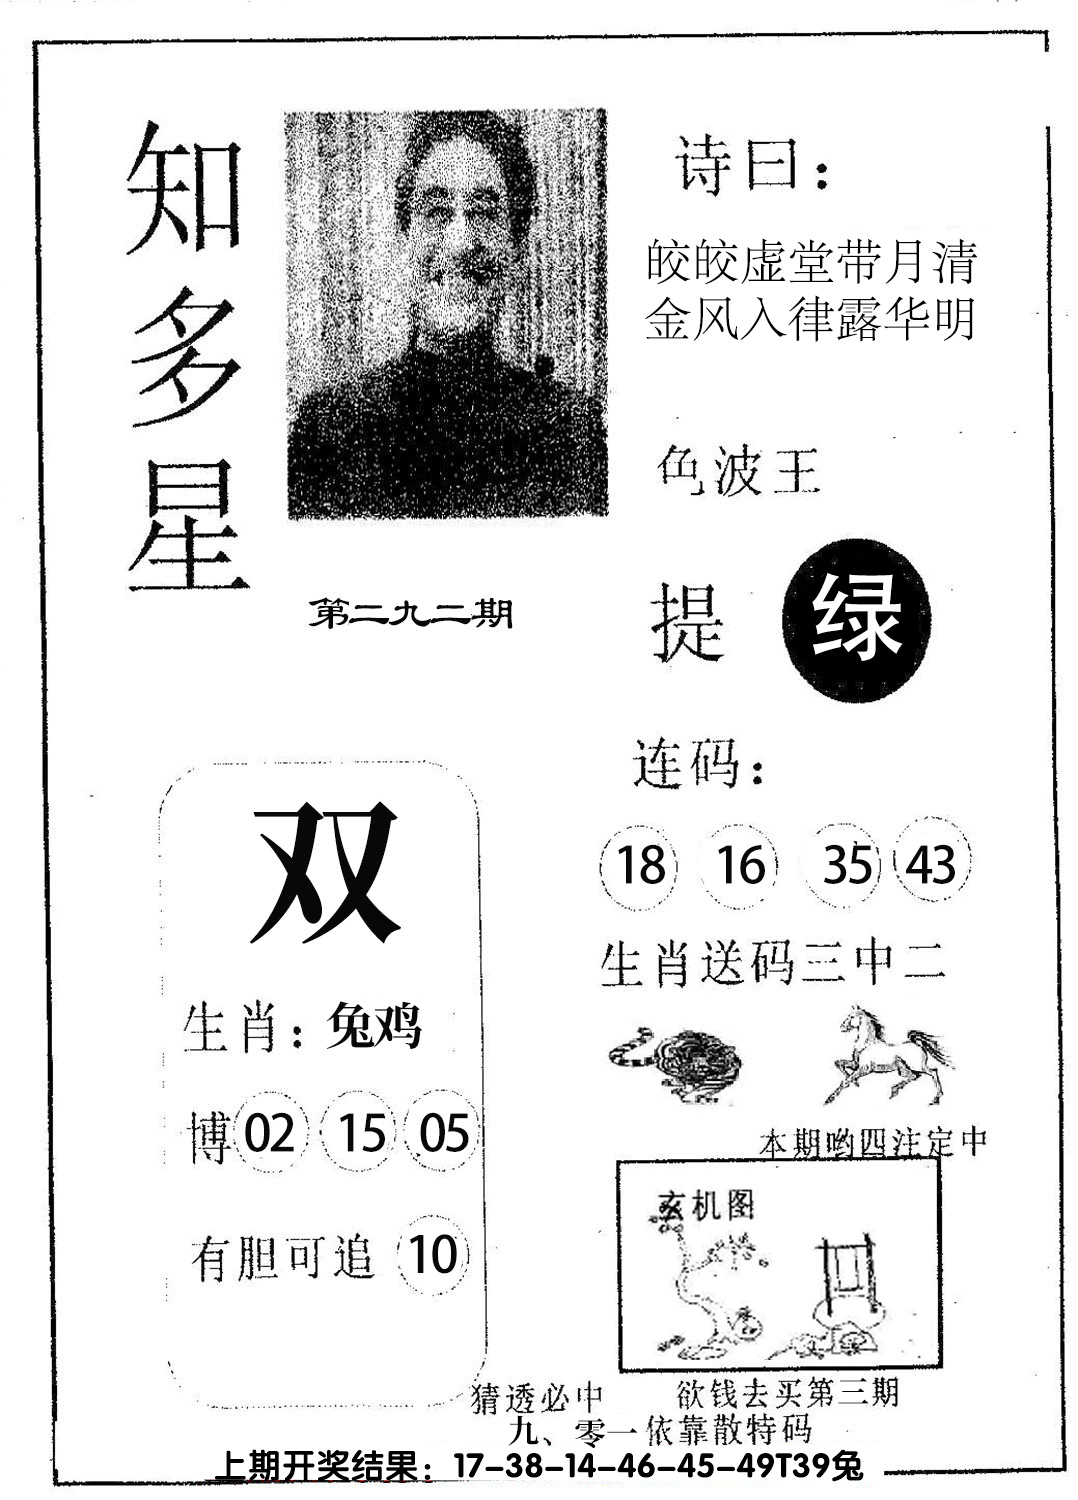 知多星
诗曰：
皎皎虚堂带月清
金风入律露华明
色波王
提 绿
第二九二期
连码：
18 16 35 43
双
生肖：兔鸡
博 02 15 05
有胆可追 10
生肖送码三中二
本期哟四注定中
玄机图
猜透必中 欲钱去买第三期
九、零一依靠散特码
上期开奖结果：17-38-14-46-45-49T39兔